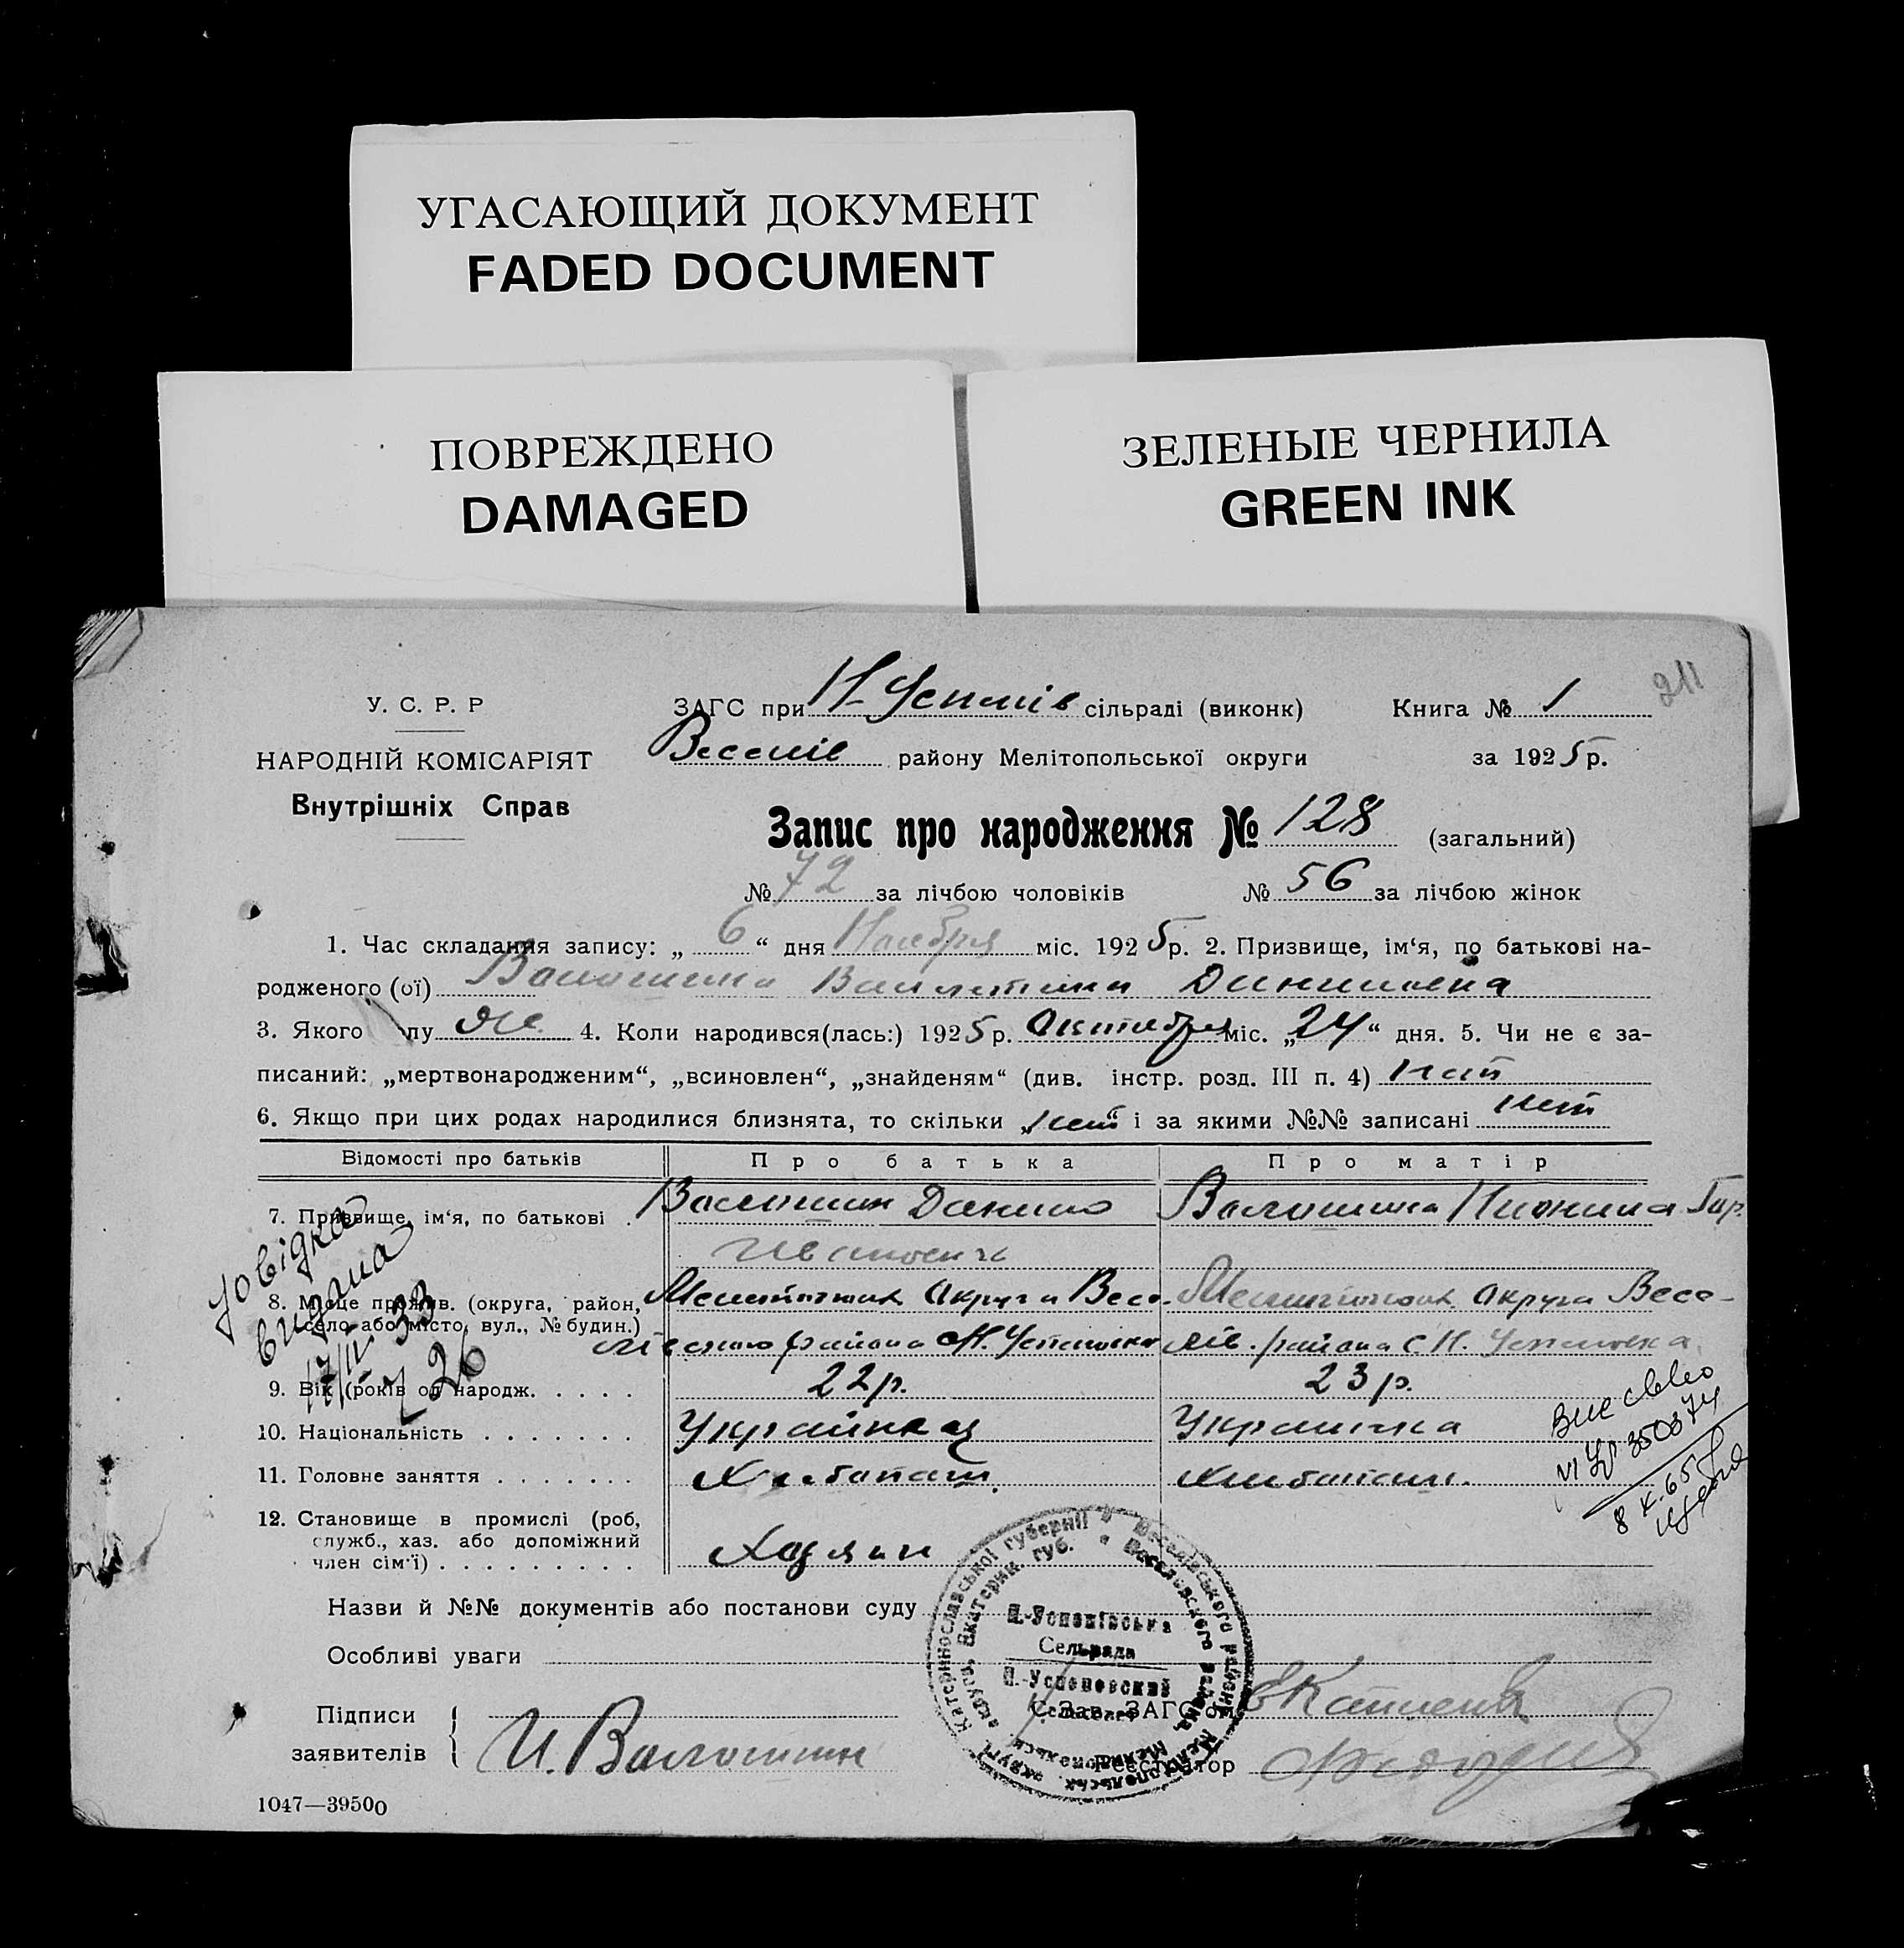 УГАСАЮЩИЙ ДОКУМЕНТ
FADED DOCUMENT
ПОВРЕЖДЕНО
DAMAGED
ЗЕЛЕНЫЕ ЧЕРНИЛА
GREEN INK
211
У. С. Р. Р
НАРОДНІЙ КОМІСАРІЯТ
Внутрішніх Справ
ЗАГС при Н-Успенів сільраді (виконк) Книга № 1
Веселів району Мелітопольської округи за 1925 р.
Запис про народження № 128 (загальний)
№ 72 за лічбою чоловіків № 56 за лічбою жінок
1. Час складання запису: „ 6 “ дня Ноября міс. 1925 р. 2. Призвище, ім‘я, по батькові на-
родженого (ої) Волошина Валентина Даниловна
3. Якого пу же 4. Коли народився(лась:) 1925 р. Октября міс. „24“ дня. 5. Чи не є за-
писаний: „мертвонародженим“, „всиновлен“, „знайденям“ (див. інстр. розд. III п. 4) нет
6. Якщо при цих родах народилися близнята, то скільки „нет“ і за якими №№ записані нет
Відомості про батьків Про батька Про матір
7. Призвище, ім‘я, по батькові . Волошин Данило Волошина
Иванович
8. Місце прожив. (округа, район, Округа Весе- Округа Весе-
село або місто, вул., № будин.) района Н. Успеновка лів. района с. Н. Успеновка
9. Вік (років од народж. . . . . 22 р. 23 р.
10. Національність . . . . . . . Українец Украинка
11. Головне заняття . . . . . . . Хлебопаш. Хлебопаш.
12. Становище в промислі (роб,
служб., хаз. або допоміжний
член сім‘ї) . . . . . . . . . Хозяин
Довідка
видана
17/IV 33
726
350374
8 X-65
Назви й №№ документів або постанови суду
Особливі уваги
Катеринославської губернії * Веселівського району, Мелітопольськ. округи
Екатерин. губ. * Веселовского района, округа
Н.-Успенівська
Сельрада
Н.-Успеновский
Сельсовет
Підписи
заявителів
И. Волошин
Зав. ЗАГС‘ом
Реєстратор
1047—39500